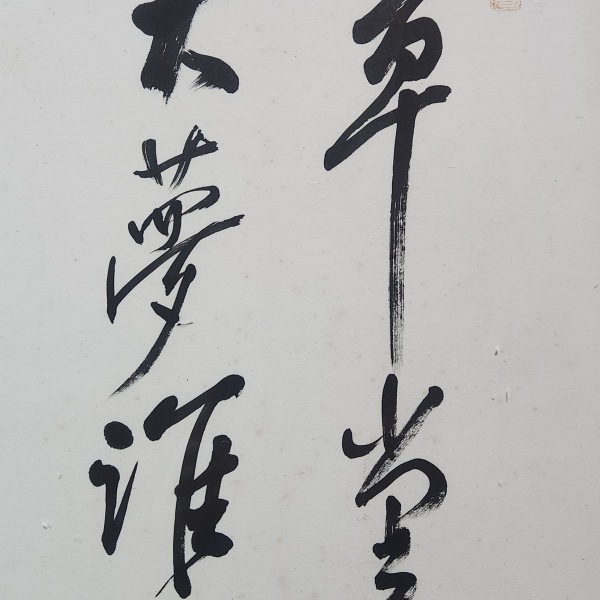 草堂
大夢誰